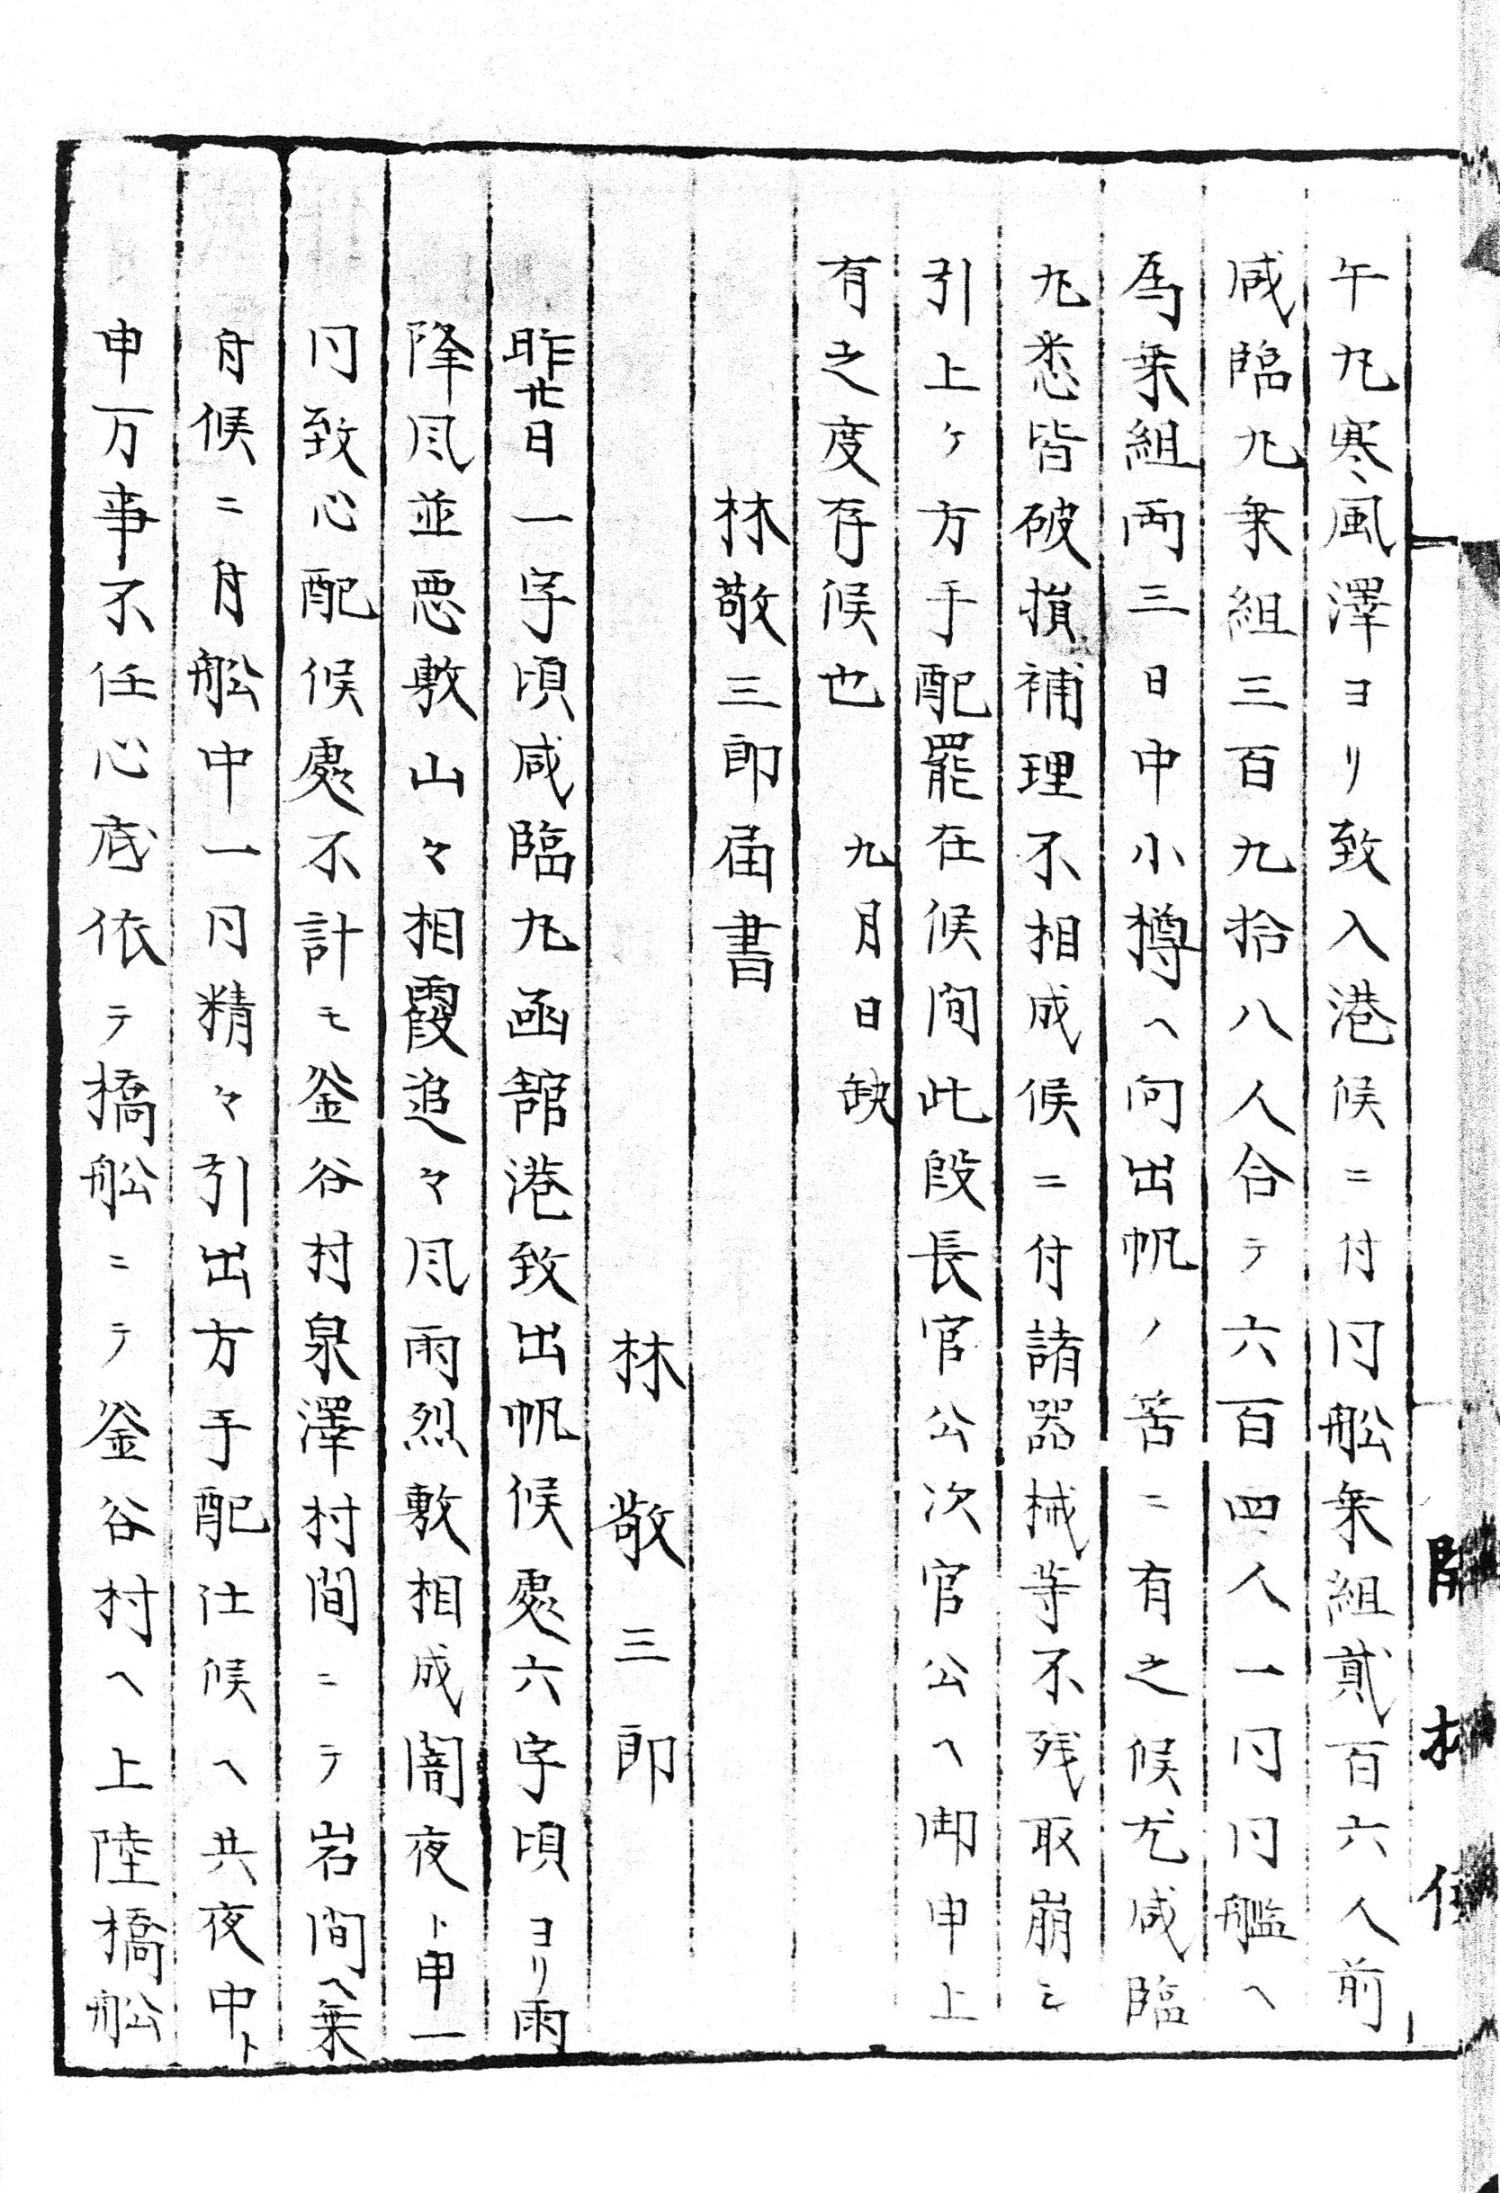 午丸寒風澤ヨリ致入港候ニ付同舩乗組貳百六人前
咸臨丸乗組三百九拾八人合テ六百四人一同同艦ヘ
為乗組両三日中小樽ヘ向出帆ノ筈ニ有之候尤咸臨
丸悉皆破損補理不相成候ニ付諸器械等不残取崩シ
引上ケ方手配罷在候間此段長官公次官公ヘ御申上
有之度存候也 九月日缺
林敬三郎届書
林敬三郎
昨廿日一字頃咸臨丸函館港致出帆候處六字頃ヨリ雨
降風並悪敷山々相霞追々風雨烈敷相成闇夜ト申一
同致心配候處不計モ釜谷村泉澤村間ニテ岩間ヘ乗
舟候ニ舟舩中一同精々引出方手配仕候ヘ共夜中ト
申万事不任心底依テ橋舩ニテ釜谷村ヘ上陸橋舩